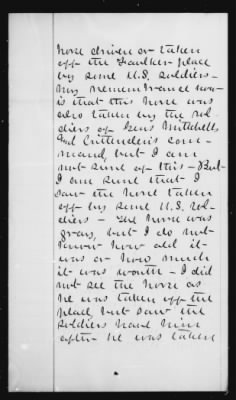 horse driven or taken
off the Faulker place
by some U.S. soldiers -
my remembrance now
is that this horse was
also taken by the sol-
diers of Genls Mitchells
and Crittendens com-
mand, but I am
not sure of this - But
I am sure that I
saw the horse taken
off by some U.S. sol-
diers - The horse was
gray, but I do not
know how old it
was or how much
it was worth - I did
not see the horse as
he was taken off the
place, but saw the
soldiers have him
after he was taken